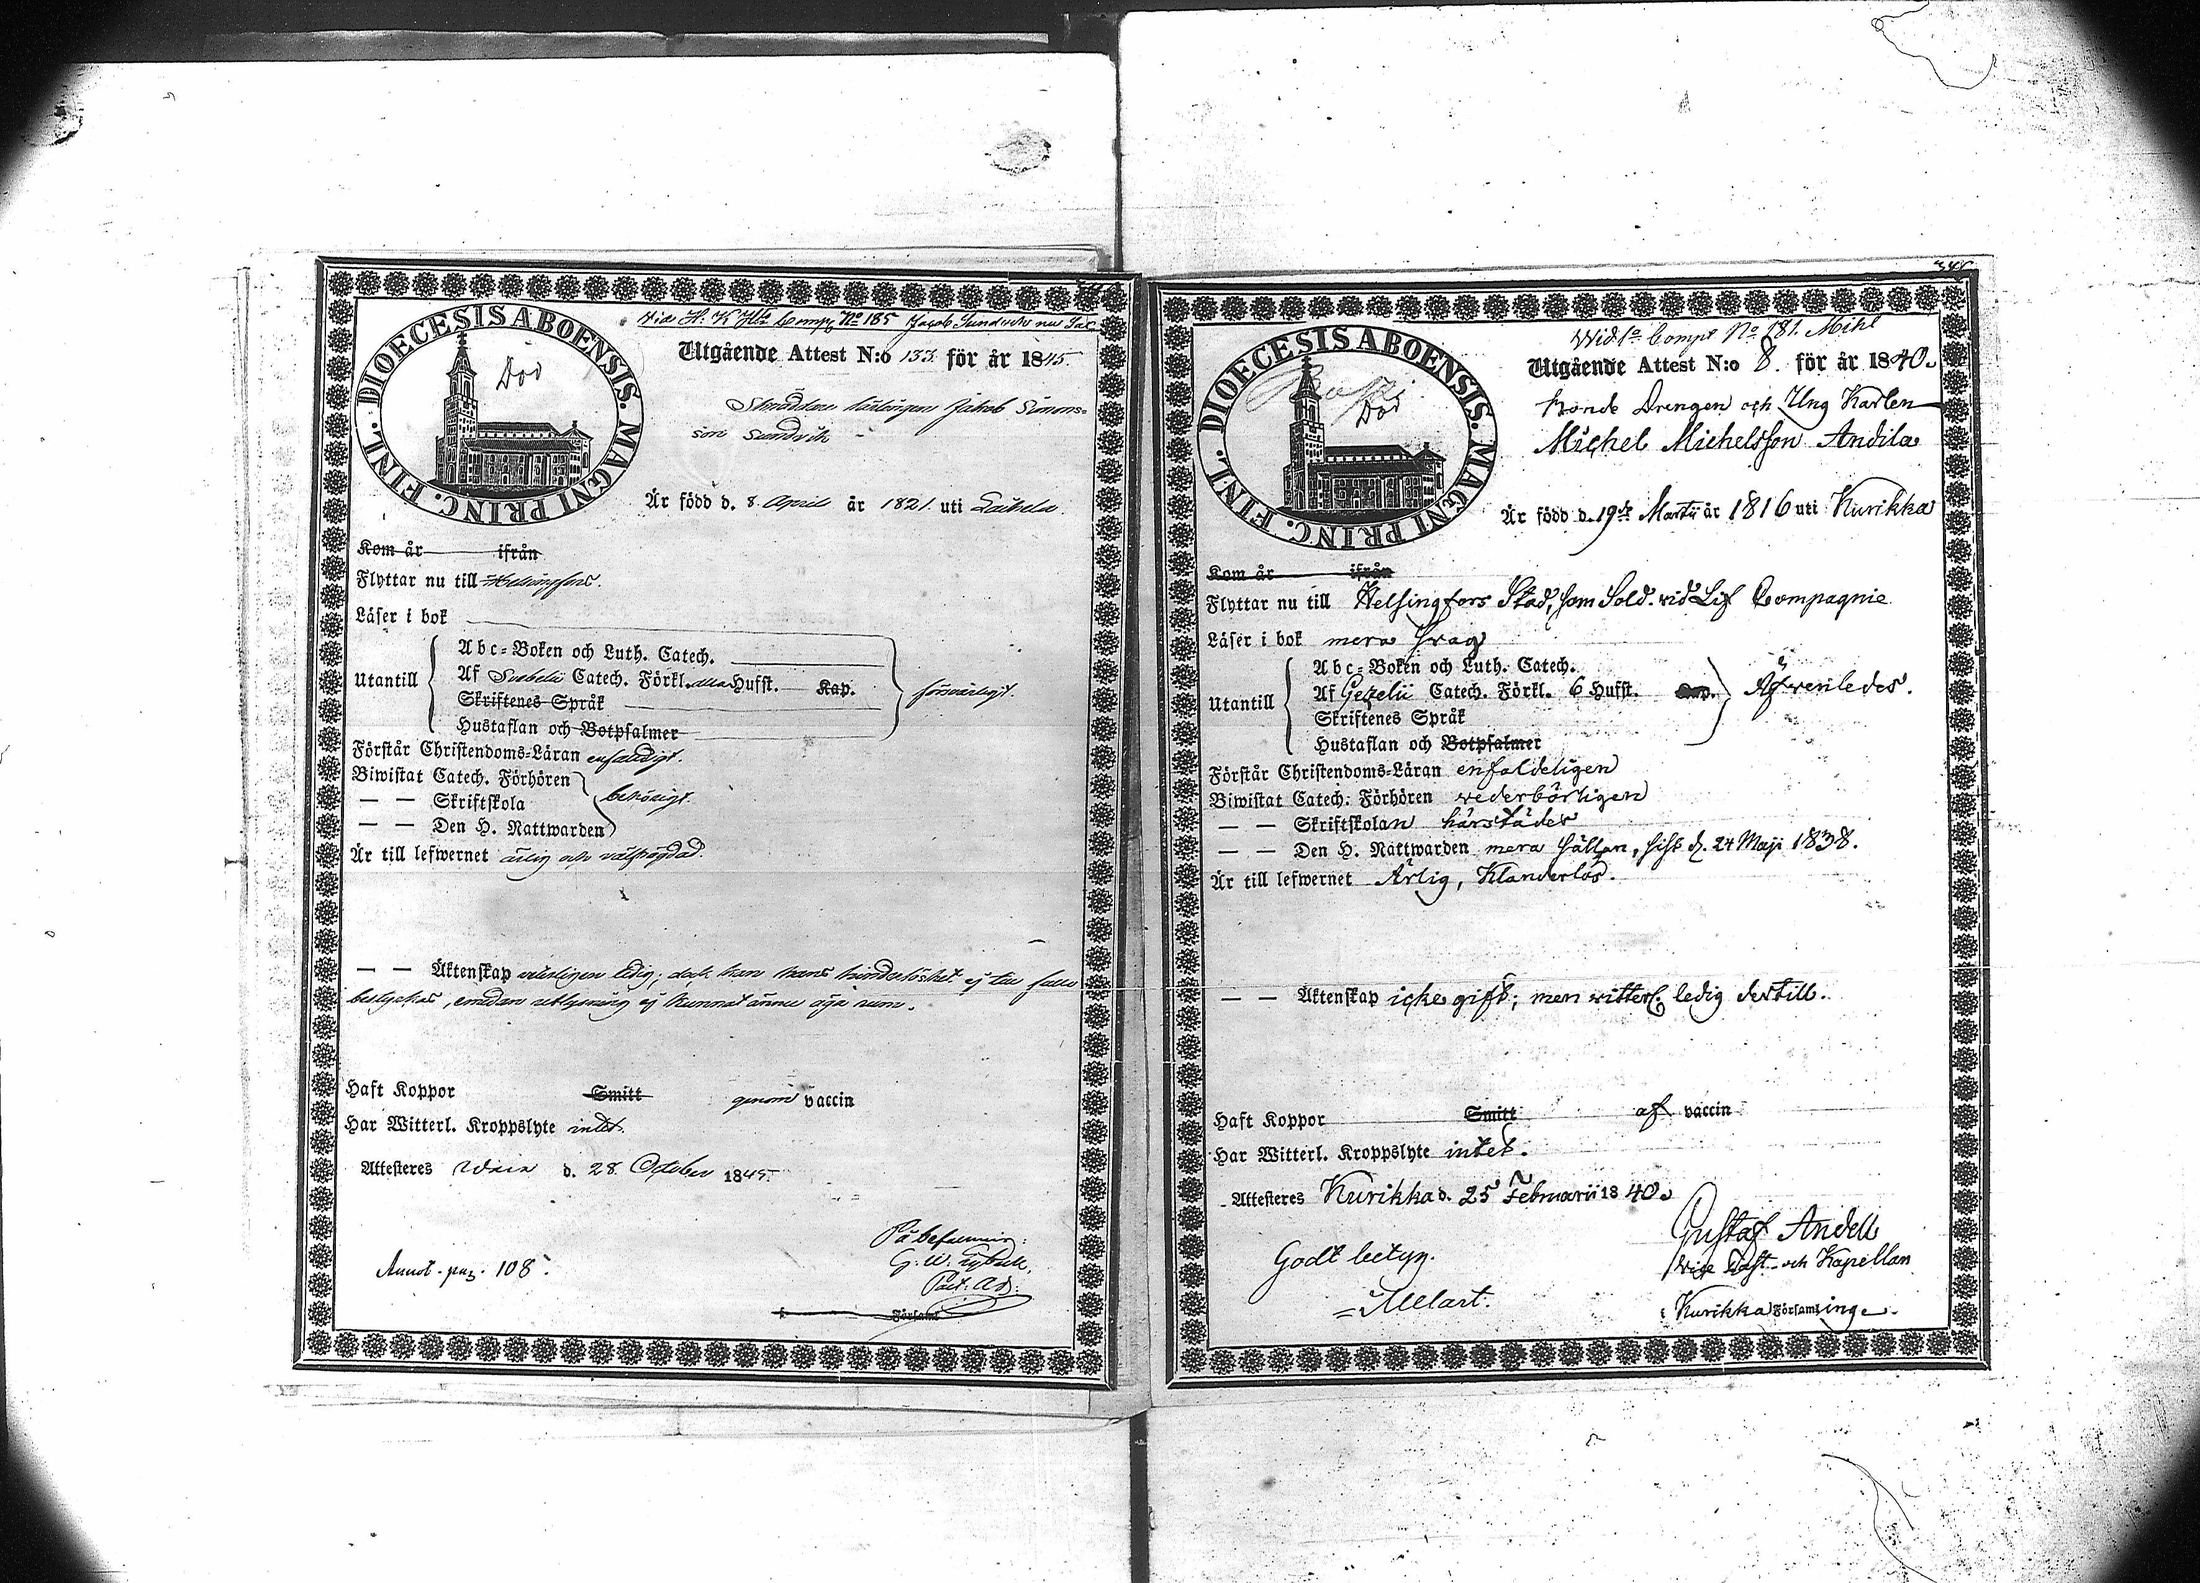 Vid H. K. Hts Comp. No 185 Jacob Sundvik nu
DIOECESIS ABOENSIS. MAGNI PRINC. FINL.
Död
Utgående Attest N:o 133 för år 1845.
Skräddare Lärlingen Jakob Simons-
son Sundvik
Är född d. 8 April år 1821. uti Laihela
Kom år ifrån
Flyttar nu till Helsingfors.
Läser i bok
Utantill
Abc-Boken och Luth. Catech.
Af Svebelii Catech. Förkl. alla Hufst. Kap.
Skriftenes Språk
Hustaflan och Botpsalmer
försvarligt.
Förstår Christendoms-Läran enfaldigt.
Biwistat Catech. Förhören
— — Skriftskola
— — Den H. Nattwarden
behörigt.
Är till lefwernet ärlig och välfrägdad.
— — Äktenskap ledig; dock kan hans hinderlöshet ej till fullo
bestyrkas, emedan utlysning ej kunnat ännu äga rum.
Haft Koppor Smitt genom vaccin
Har Witterl. Kroppslyte intet.
Attesteres Wasa d. 28 October 1845.
På befallning:
G. W.
Past. Adj.
Annot. pag. 108.
i Församl
346
Wid 1a Compt No 181. Mihl
DIOECESIS ABOENSIS. MAGNI PRINC. FINL.
Död
Utgående Attest N:o 8. för år 1840.
Bonde Drengen och Ung Karlen
Michel Michelsson Andila
Är född d. 19de Martii år 1816 uti Kurikka
Kom år ifrån
Flyttar nu till Helsingfors Stad, som Sold. vid Lif Compagnie.
Läser i bok mera svag
Utantill
Abc-Boken och Luth. Catech.
Af Gezelii Catech. Förkl. 6 Hufst. Kap.
Skriftenes Språk
Hustaflan och Botpsalmer
Äfvenledes.
Förstår Christendoms-Läran enfaldeligen
Biwistat Catech. Förhören vederbörligen
— — Skriftskolan härstädes
— — Den H. Nattwarden mera sällan, sist d. 24 Maji 1838.
Är till lefwernet Ärlig, Klanderlös.
— — Äktenskap icke gift; men witterl. ledig dertill.
Haft Koppor Smitt af vaccin
Har Witterl. Kroppslyte intet.
Attesteres Kurikka d. 25 Februarii 1840.
Gustaf Andell
Vice Past. och Kapellan
i Kurikka Församlinge.
Godt betyg.
Melart.